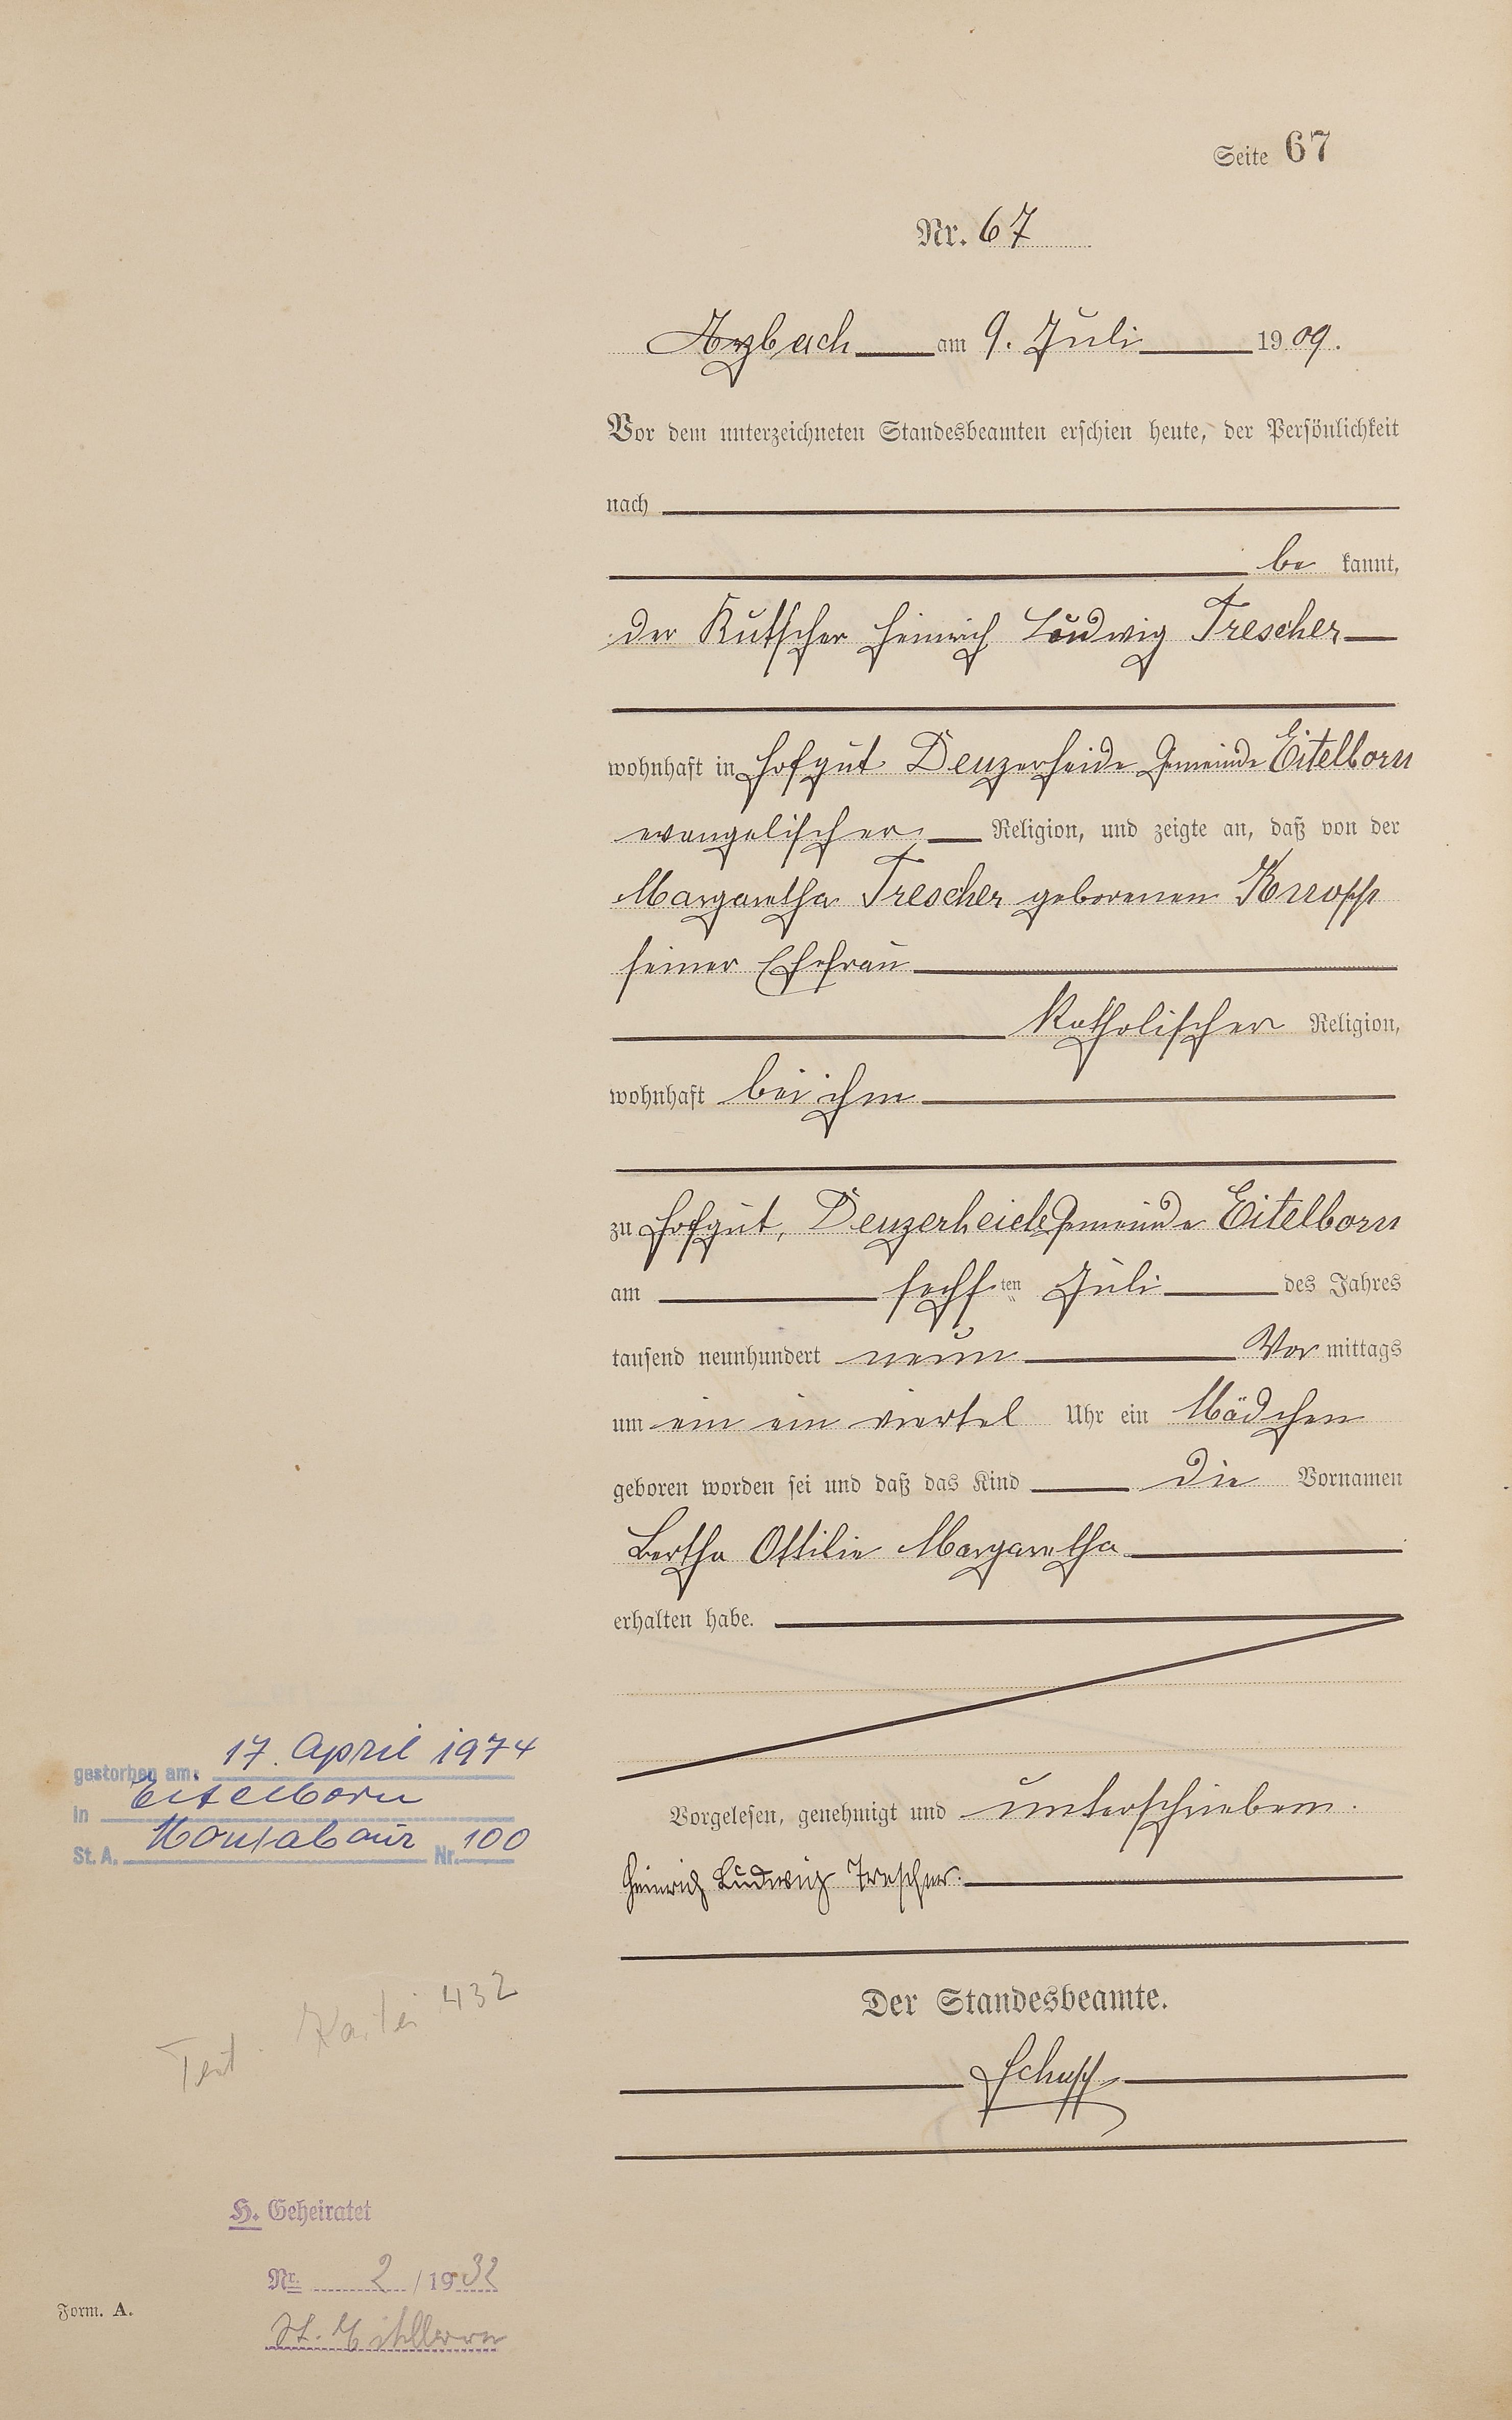 Seite 67
Nr. 67
Arzbach am 9. Juli 1909.
Vor dem unterzeichneten Standesbeamten erschien heute, der Persönlichkeit
nach
be kannt,
der Kutscher Heinrich Ludwig Trescher
wohnhaft in Hofgut Denzerheide Gemeinde Eitelborn
evangelischer Religion, und zeigte an, daß von der
Margaretha Trescher geborenen Knopp
seiner Ehefrau
katholischer Religion,
wohnhaft bei ihm
zu Hofgut, Denzerheide Gemeinde Eitelborn
am sechsten Juli des Jahres
tausend neunhundert neun Vor mittags
um ein ein viertel Uhr ein Mädchen
geboren worden sei und daß das Kind die Vornamen
Bertha Ottilie Margaretha
erhalten habe.
Vorgelesen, genehmigt und unterschrieben.
Heinrich Ludwig Trescher.
Der Standesbeamte.
Schupp
gestorben am: 17. April 1974
in Eitelborn
St. A. Montabaur Nr. 100
Kartei 432
H. Geheiratet
Nr. 2 / 1932
St. Eitelborn
Form. A.